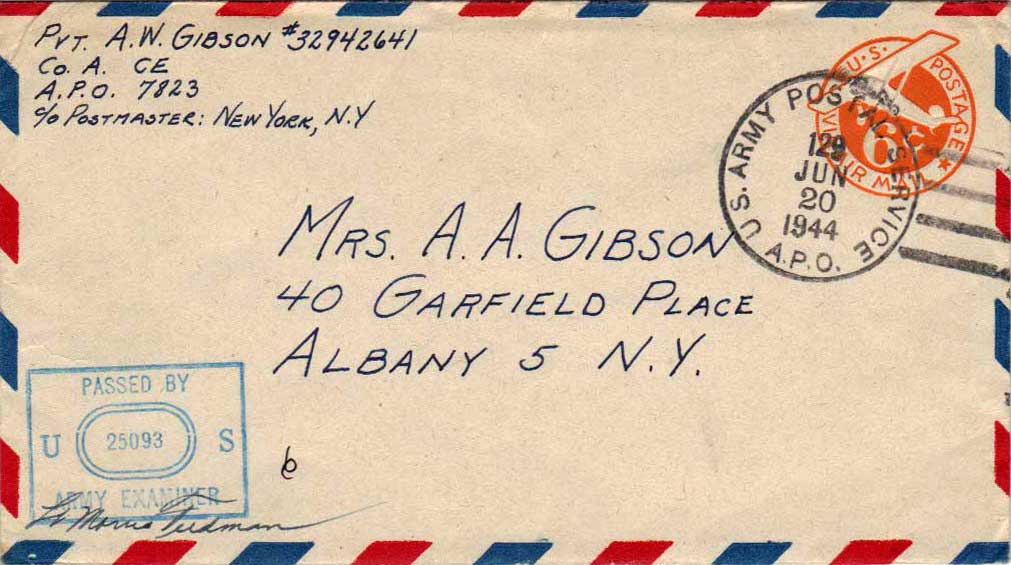 PVT. A.W. GIBSON #32942641
CO. A. CE
A.P.O. 7823
c/o POSTMASTER: NEW YORK, N.Y
U.S. POSTAGE
VIA AIR MAIL
6¢
U.S. ARMY POSTAL SERVICE
129
JUN
20
1944
A.P.O.
MRS. A. A. GIBSON
40 GARFIELD PLACE
ALBANY 5 N.Y.
PASSED BY
U 25093 S
ARMY EXAMINER
Lt Morris